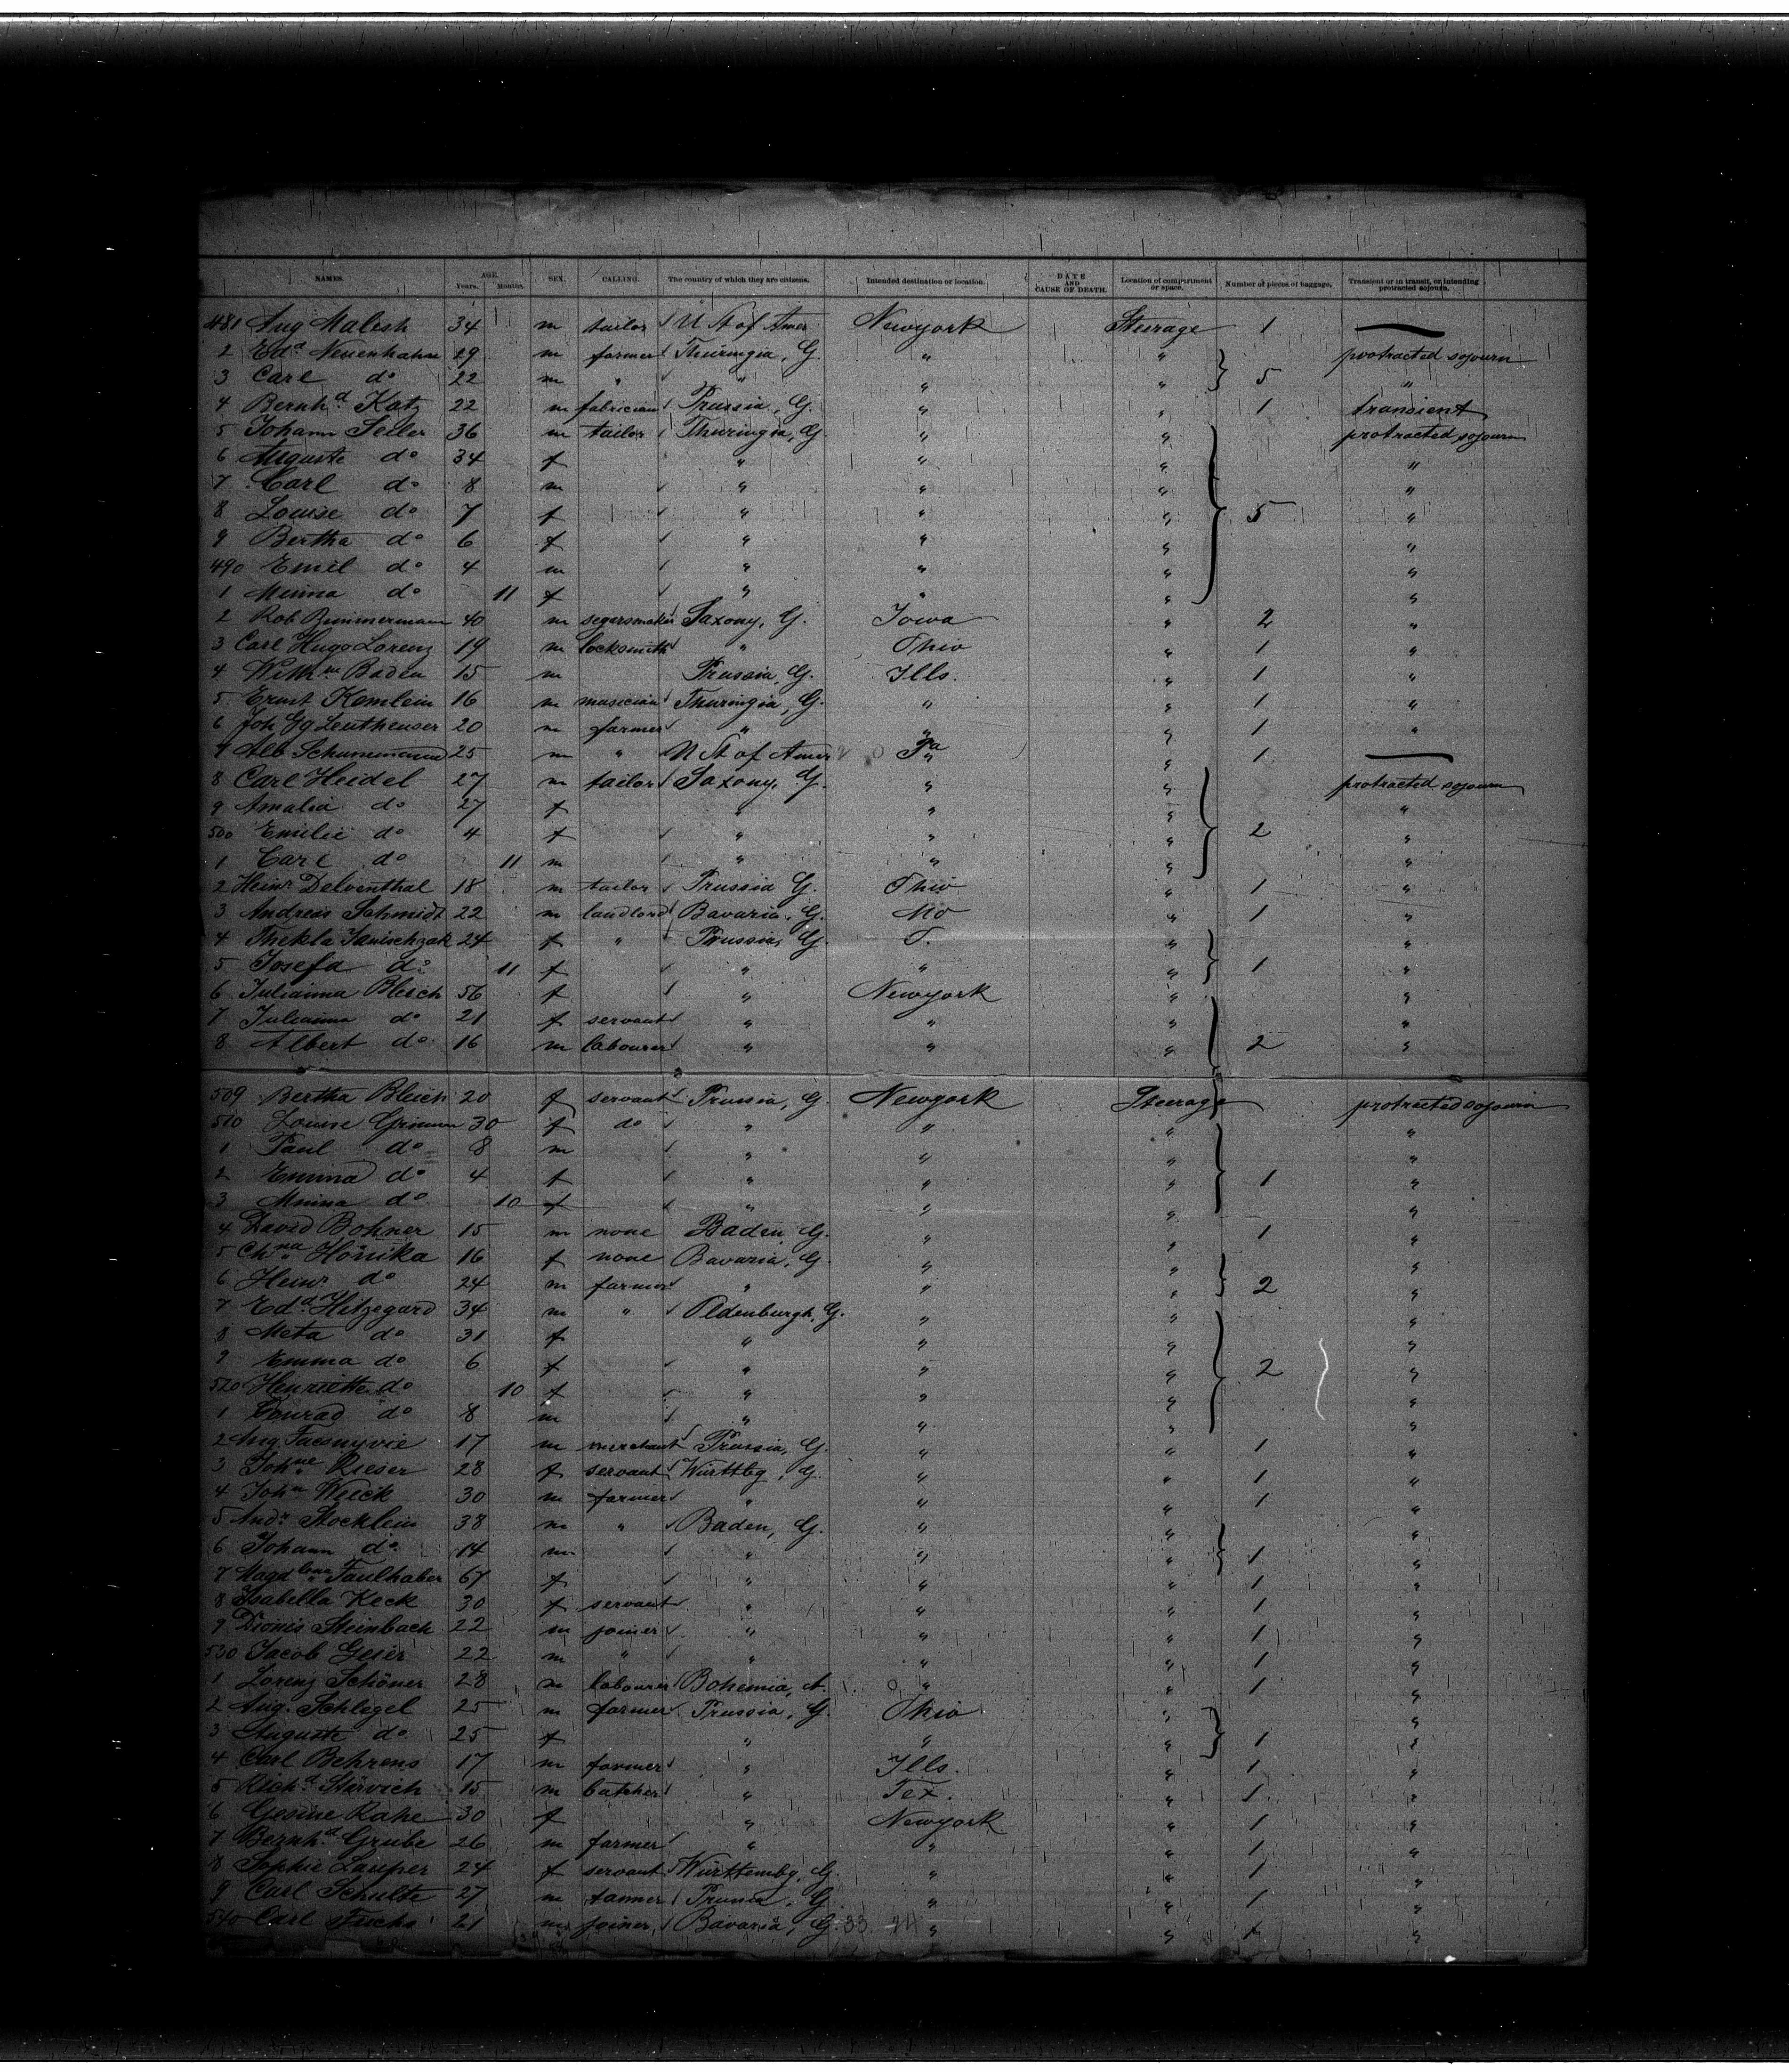 NAMES. AGE. Years. Months. SEX. CALLING. The country of which they are citizens. Intended destination or location. DATE AND CAUSE OF DEATH. Location of compartment or space. Number of pieces of baggage. Transient or in transit, or intending protracted sojourn.
481 Aug Malesh 34 m tailor U St of Amer Newyork Steerage 1 —
2 Edd Neuenhahn 29 m farmer Thuringia, G. " " protracted sojourn
3 Carl do 22 m " " " " 5 "
4 Bernhd Katz 22 m fabrician Prussia, G. " " 1 transient
5 Johann Seiler 36 m tailor Thuringia, G. " " protracted sojourn
6 Auguste do 34 f " " " "
7 Carl do 8 m " " " "
8 Louise do 7 f " " " 5 "
9 Bertha do 6 f " " " "
490 Emil do 4 m " " " "
1 Minna do 11 f " " " "
2 Rob Zimmermann 40 m segarsmaker Saxony, G. Iowa " 2 "
3 Carl Hugo Lorenz 19 m locksmith " Ohio " 1 "
4 Wilhm Baden 15 m Prussia, G. Ills. " 1 "
5 Ernst Komlein 16 m musician Thuringia, G. " " 1 "
6 Joh Gg Leutheuser 20 m farmer " " " 1 "
7 Alb Schunemann 25 m " U St of Amer Pa " 1 —
8 Carl Heidel 27 m tailor Saxony, G. " " protracted sojourn
9 Amalia do 27 f " " " "
500 Emilie do 4 f " " " 2 "
1 Carl do 11 m " " " "
2 Heinr Delventhal 18 m tailor Prussia G. Ohio " 1 "
3 Andreas Schmidt 22 m landlord Bavaria, G. Mo " 1 "
4 Thekla Janischzak 24 f " Prussia, G. O. " "
5 Josefa do 11 f " " " 1 "
6 Julianna Bleich 56 f " Newyork " "
7 Julianna do 21 f servant " " " "
8 Albert do 16 m labourer " " " 2 "
509 Bertha Bleich 20 f servant Prussia, G. Newyork Steerage protracted sojourn
510 Louise 30 f do " " " "
1 Paul do 8 m " " " "
2 Emma do 4 f " " " 1 "
3 Minna do 10 f " " " "
4 David Bohner 15 m none Baden G. " " 1 "
5 Chna Hönika 16 f none Bavaria, G. " " "
6 Heinr do 24 m farmer " " " 2 "
7 Edd Hitzegard 34 m " Oldenburgh, G. " " "
8 Meta do 31 f " " " "
9 Emma do 6 f " " " 2 "
520 Henriette do 10 f " " " "
1 Conrad do 8 m " " " "
2 Aug 17 m merchant Prussia, G. " " 1 "
3 Johne Rieser 28 f servant Württbg, G. " " 1 "
4 John Weick 30 m farmer " " " 1 "
5 Andr Stocklein 38 m " Baden, G. " " "
6 Johann do 14 m " " " 1 "
7 Magdlena Faulhaber 67 f " " " 1 "
8 Isabella Keck 30 f servant " " " 1 "
9 Dionis Steinbach 22 m joiner " " " 1 "
530 Jacob Geier 22 m " " " " 1 "
1 Lorenz Schöner 28 m labourer Bohemia, A. " " 1 "
2 Aug. Schlegel 25 m farmer Prussia, G. Ohio " "
3 Auguste do 25 f " " " 1 "
4 Carl Behrens 17 m farmer " Ills. " 1 "
5 Richd 15 m butcher " Tex. " 1 "
6 Gesine Rahe 30 f " Newyork " 1 "
7 Bernhd Grube 26 m farmer " " " 1 "
8 Sophie Lauper 24 f servant Württembg, G. " " 1 "
9 Carl Schulte 27 m tanner Prussia, G. " " 1 "
540 Carl Fuchs 21 m joiner Bavaria, G. " " 1 "